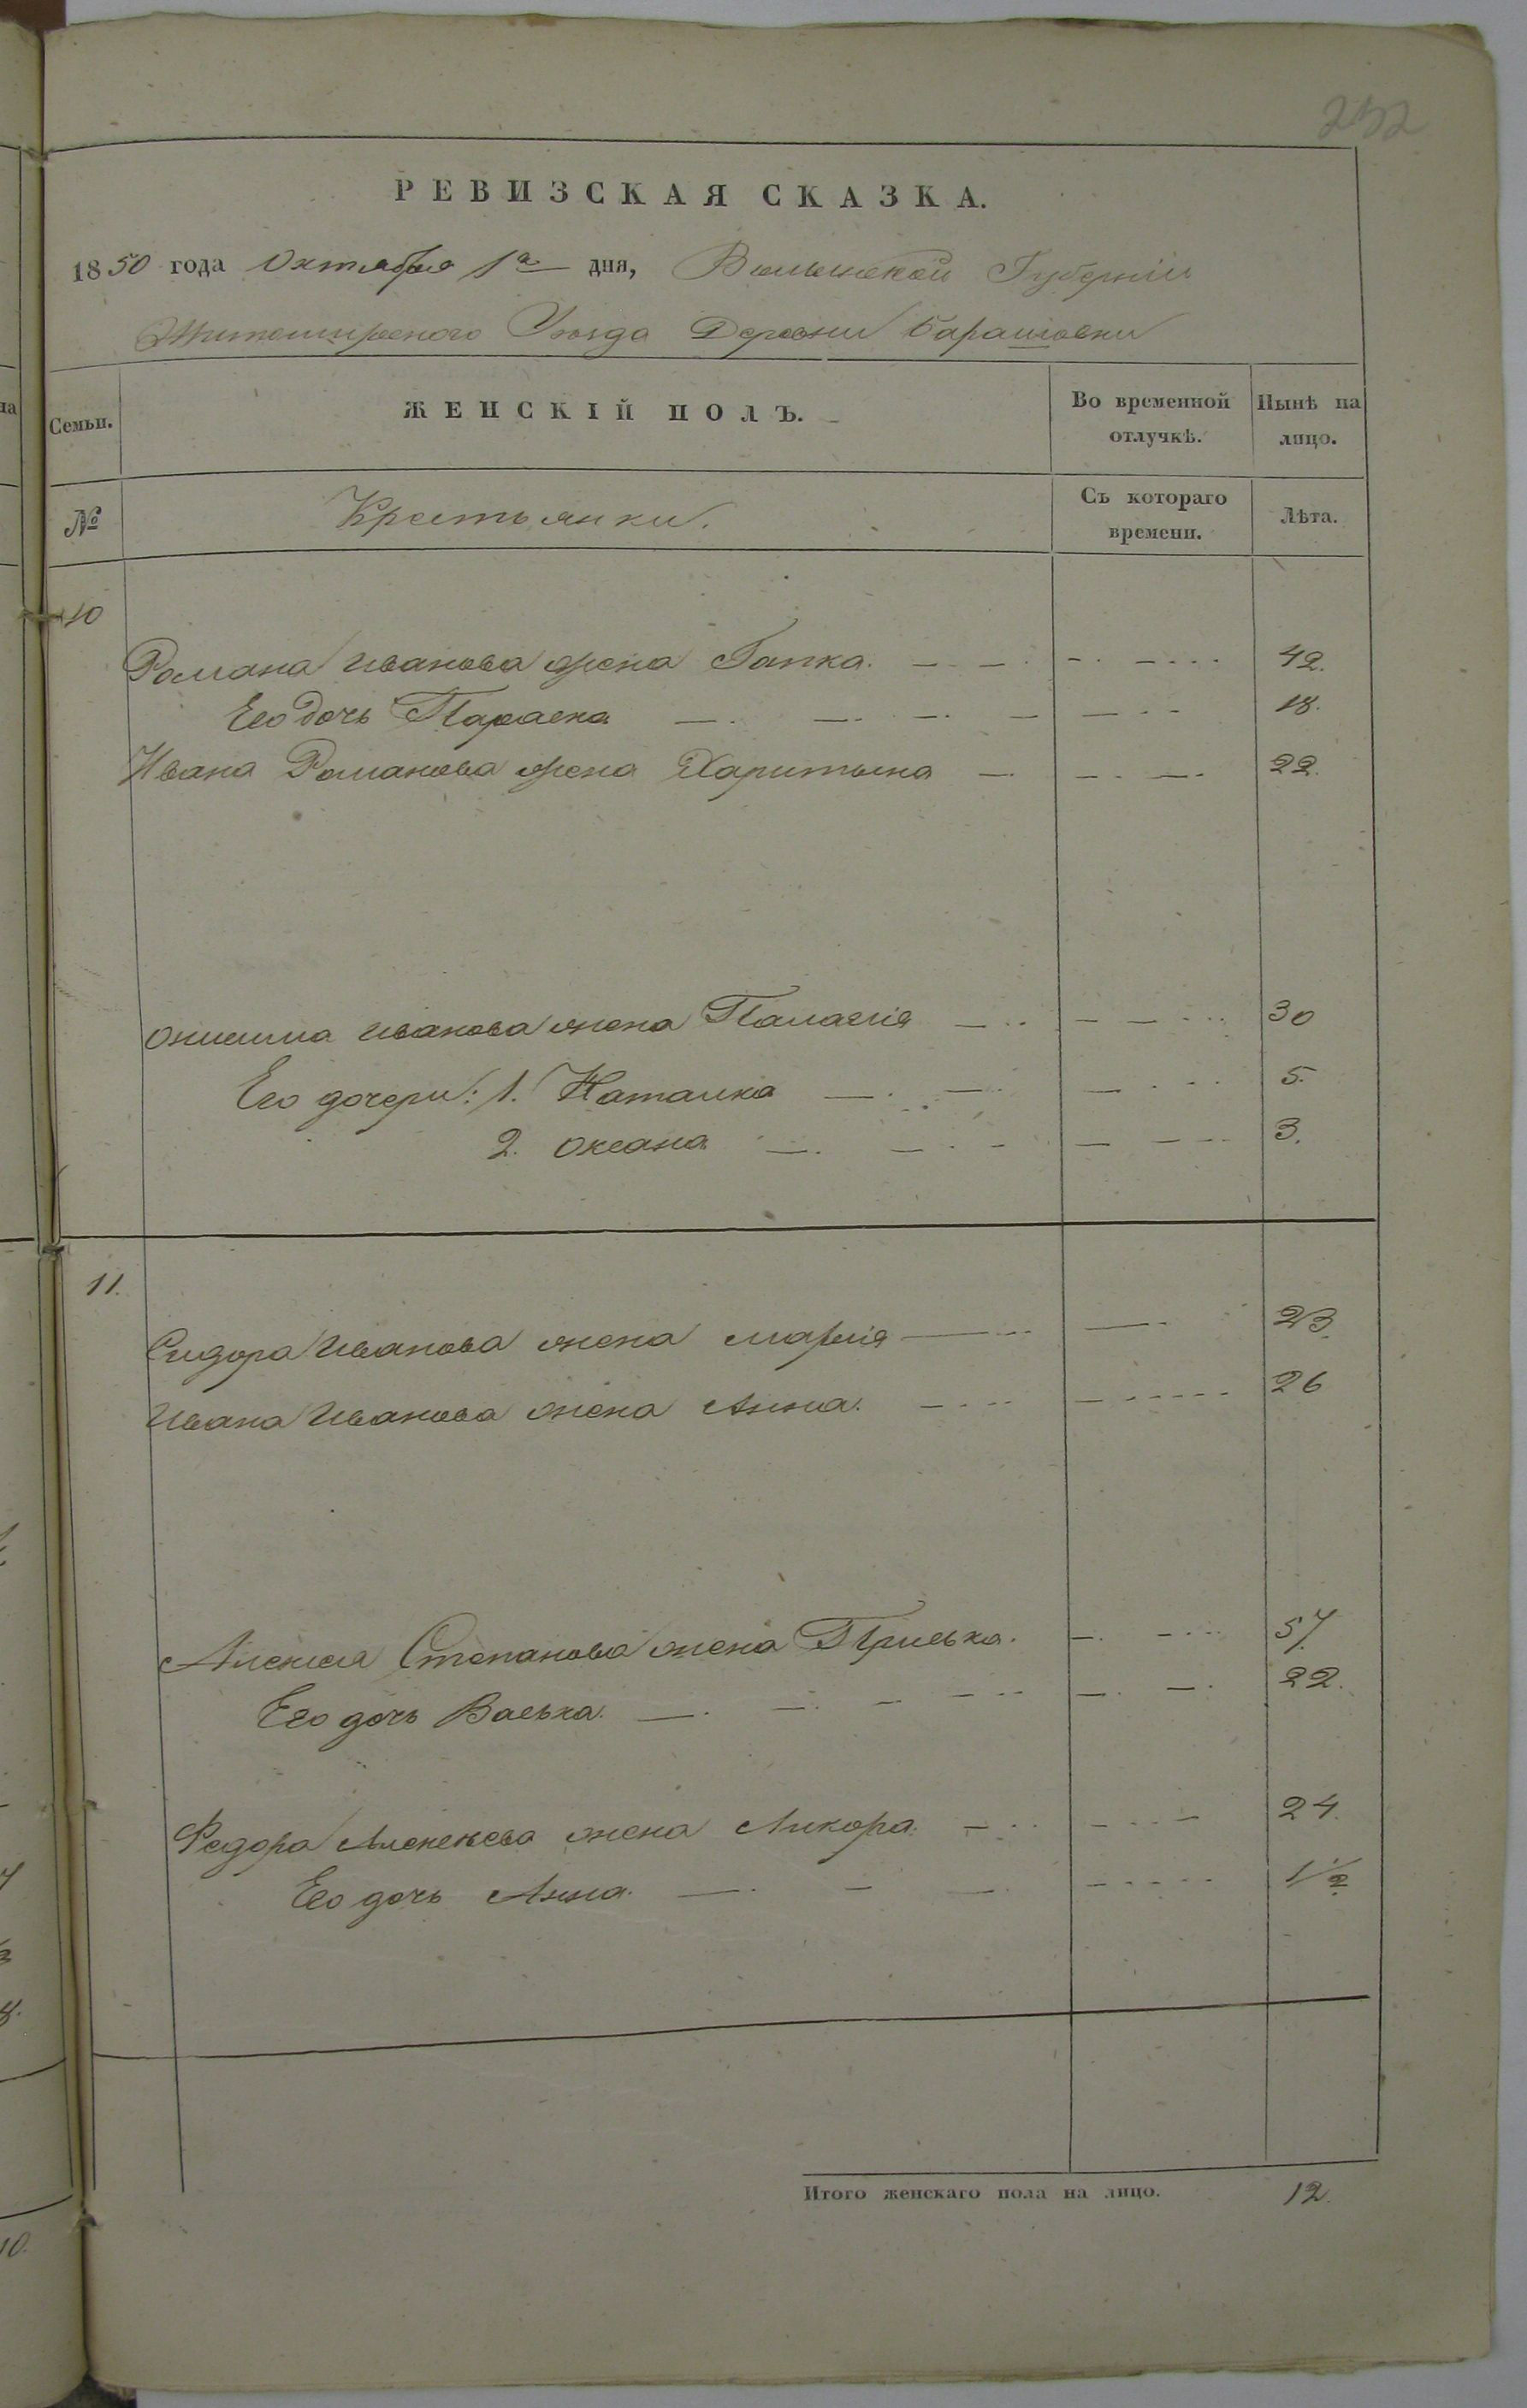 252
РЕВИЗСКАЯ СКАЗКА.
1850 года Октября 1го дня, Волынской Губерніи
Житомирского Уѣзда Деревни Барашовки
Семьи.
ЖЕНСКІЙ ПОЛЪ.
Во временной отлучкѣ.
Нынѣ на лицо.
№
Крестьянки.
Съ котораго времени.
Лѣта.
10
Романа Иванова жена Гапка. 42.
Его дочь Параска 18.
Ивана Романова жена Харитына 22.
Онисима Иванова жена Палагія 30
Его дочери: 1. Наталка 5.
2. Оксана 3.
11.
Сидора Иванова жена Марія 23.
Ивана Иванова жена Анна. 26
Алексея Степанова жена Приська. 57.
Его дочь Васька. 22.
Федора Алексеева жена Ликора. 24.
Его дочь Анна. 1 1/2
Итого женскаго пола на лицо. 12.
10.